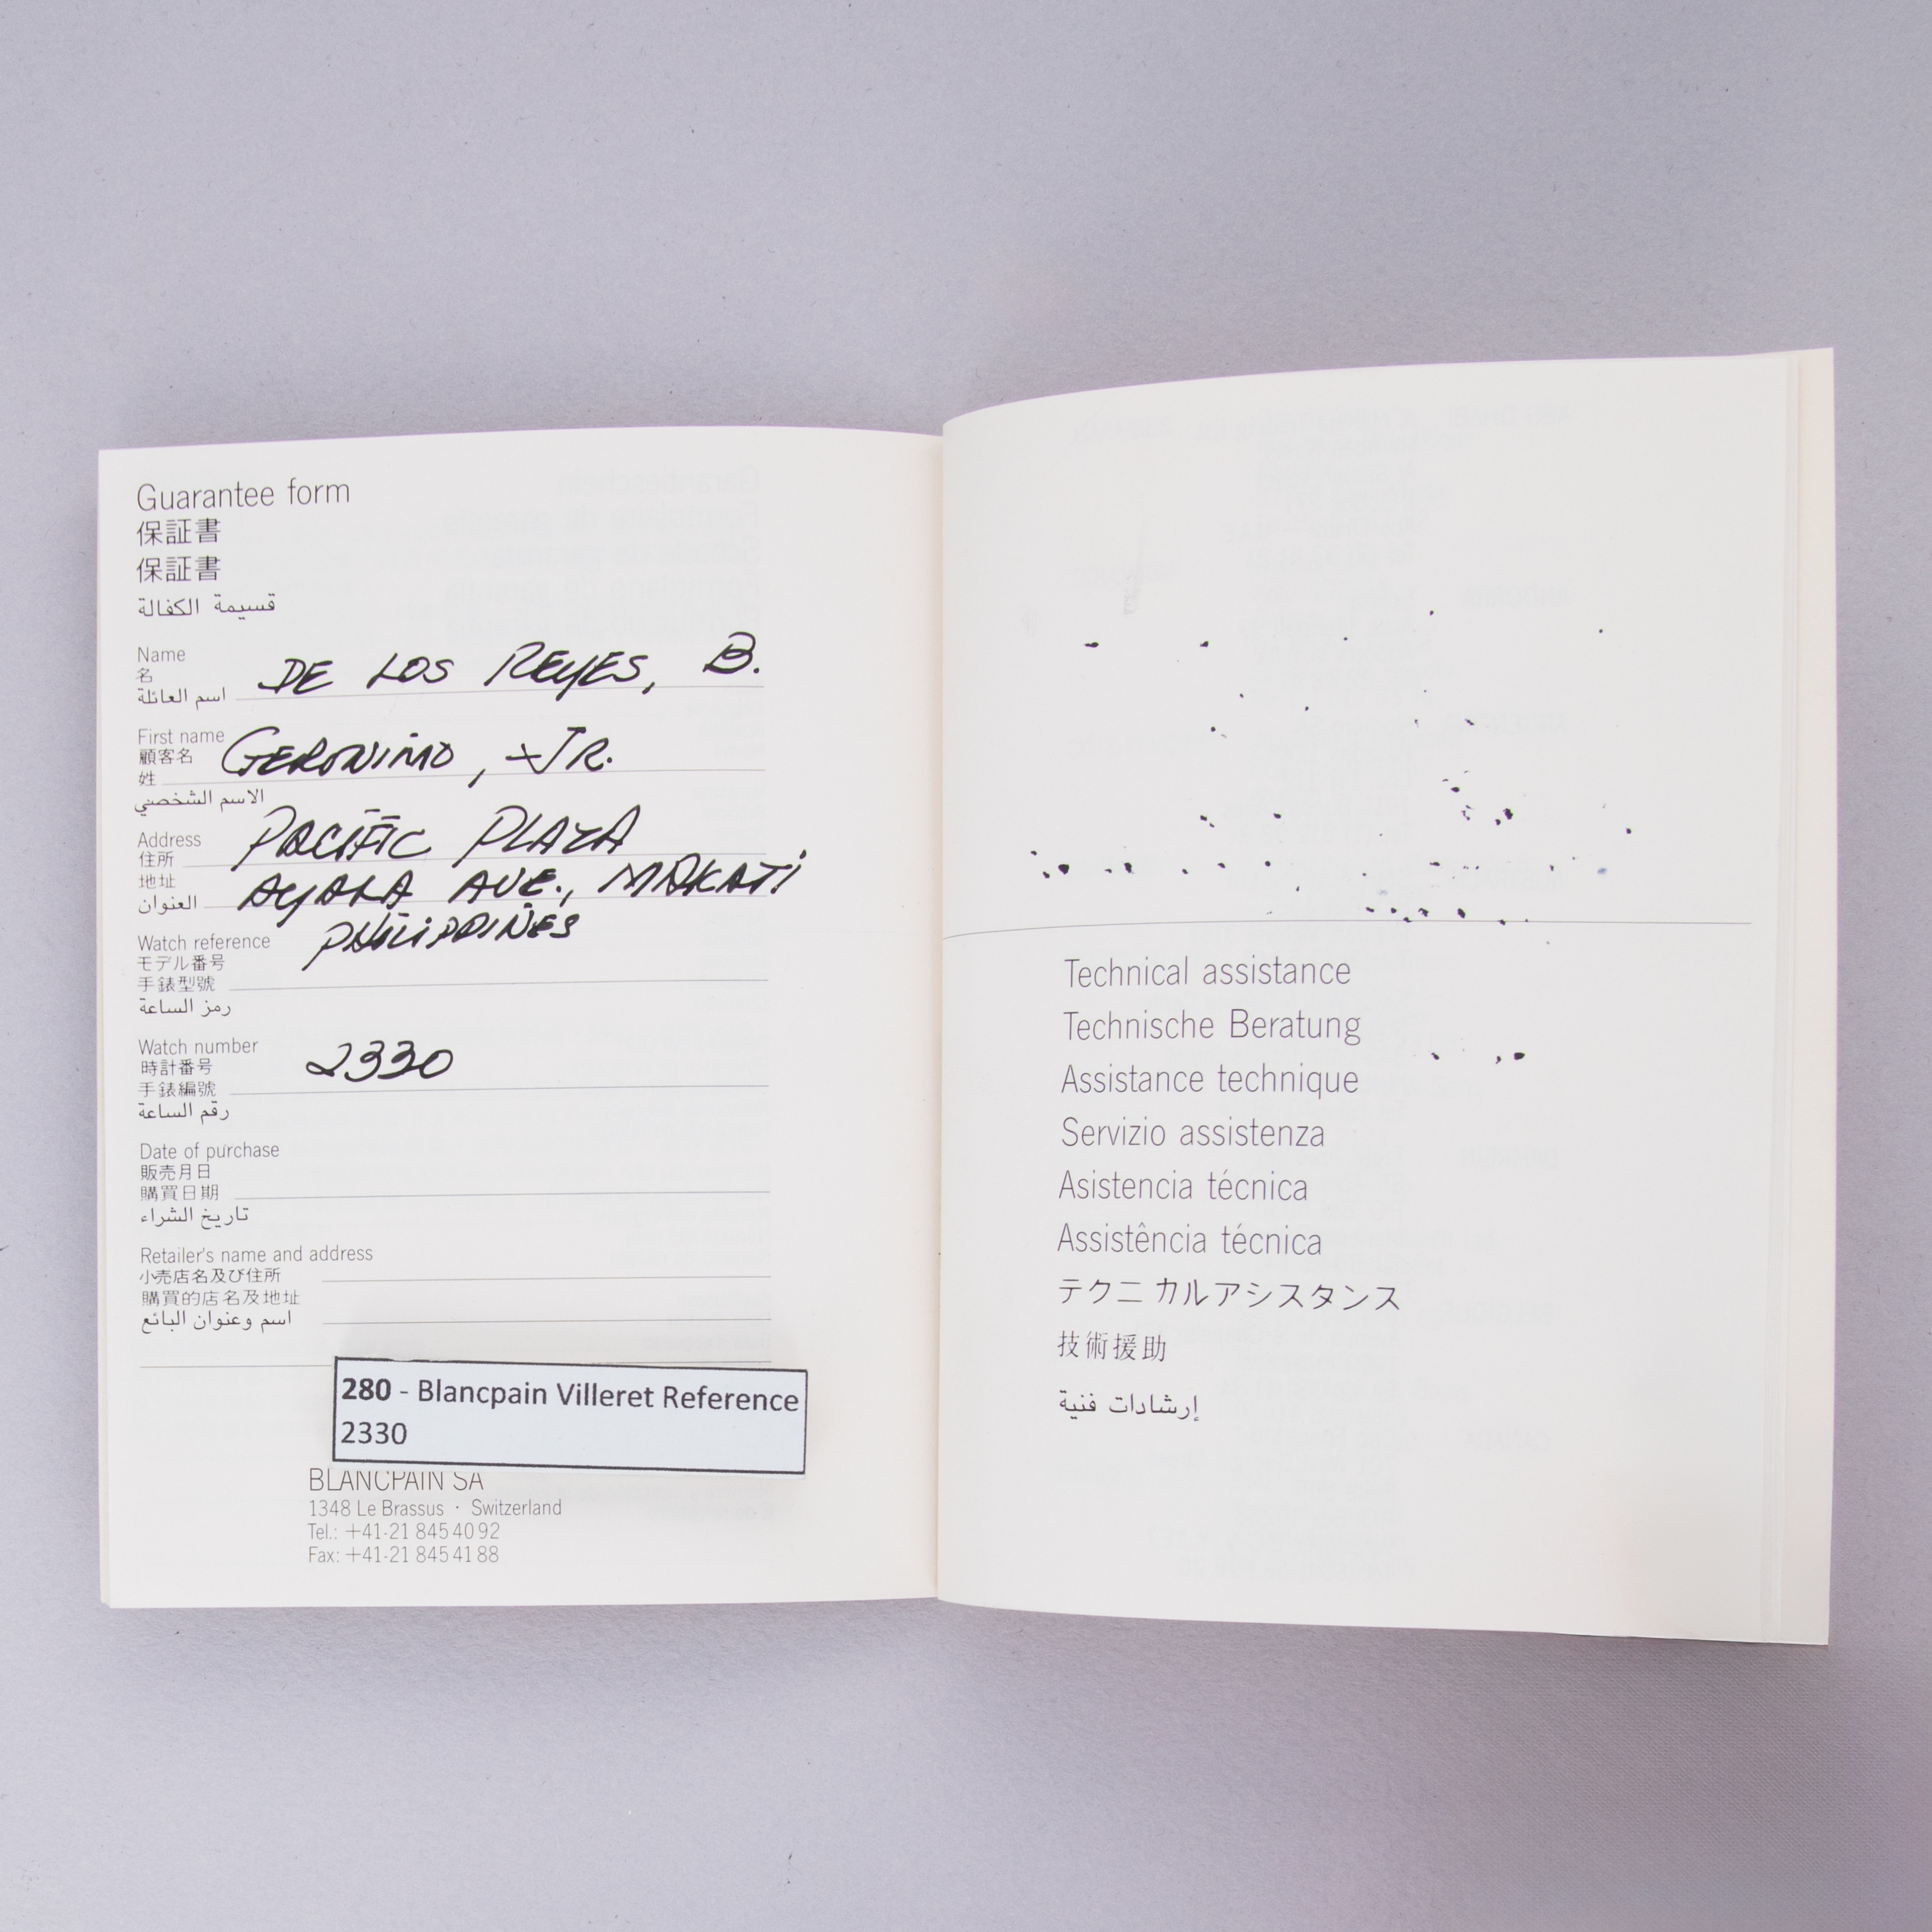 Guarantee form
保証書
保証書
قسيمة الكفالة
Name
名
اسم العائلة
DE LOS REYES, B.
First name
顧客名
姓
الاسم الشخصي
GERONIMO, JR.
Address
住所
地址
العنوان
PACIFIC PLAZA
AYALA AVE., MAKATI
PHILIPPINES
Watch reference
モデル番号
手錶型號
رمز الساعة
Watch number
時計番号
手錶編號
رقم الساعة
2330
Date of purchase
販売月日
購買日期
تاريخ الشراء
Retailer's name and address
小売店名及び住所
購買的店名及地址
اسم وعنوان البائع
280 - Blancpain Villeret Reference
2330
BLANCPAIN SA
1348 Le Brassus · Switzerland
Tel.: +41-21 845 40 92
Fax: +41-21 845 41 88
Technical assistance
Technische Beratung
Assistance technique
Servizio assistenza
Asistencia técnica
Assistência técnica
テクニカルアシスタンス
技術援助
إرشادات فنية